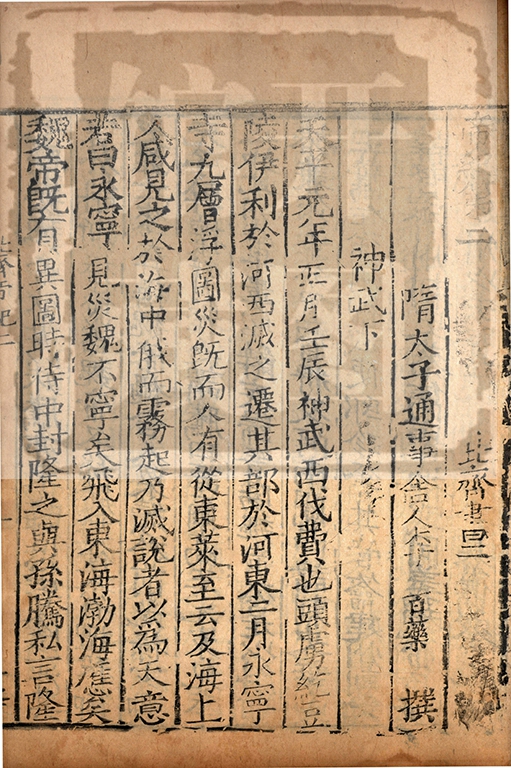 帝紀第二 北齊書二
隋太子通事舍人李百藥撰
神武下
天平元年正月壬辰神武西伐費也頭虜紇豆
陵伊利於河西滅之遷其部於河東二月永寧
寺九層浮圖災既而人有從東萊至云及海上
人咸見之於海中俄而霧起乃滅說者以為天意
若曰永寧見災魏不寧矣飛入東海渤海應矣
魏帝既有異圖時侍中封隆之與孫騰私言隆